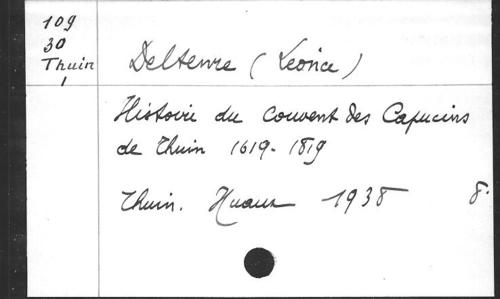 109
30
Thuin
1
Deltenre (Léonce)
Histoire du Couvent des Capucins
de Thuin 1619-1819
Thuin. Huaux 1938 8.